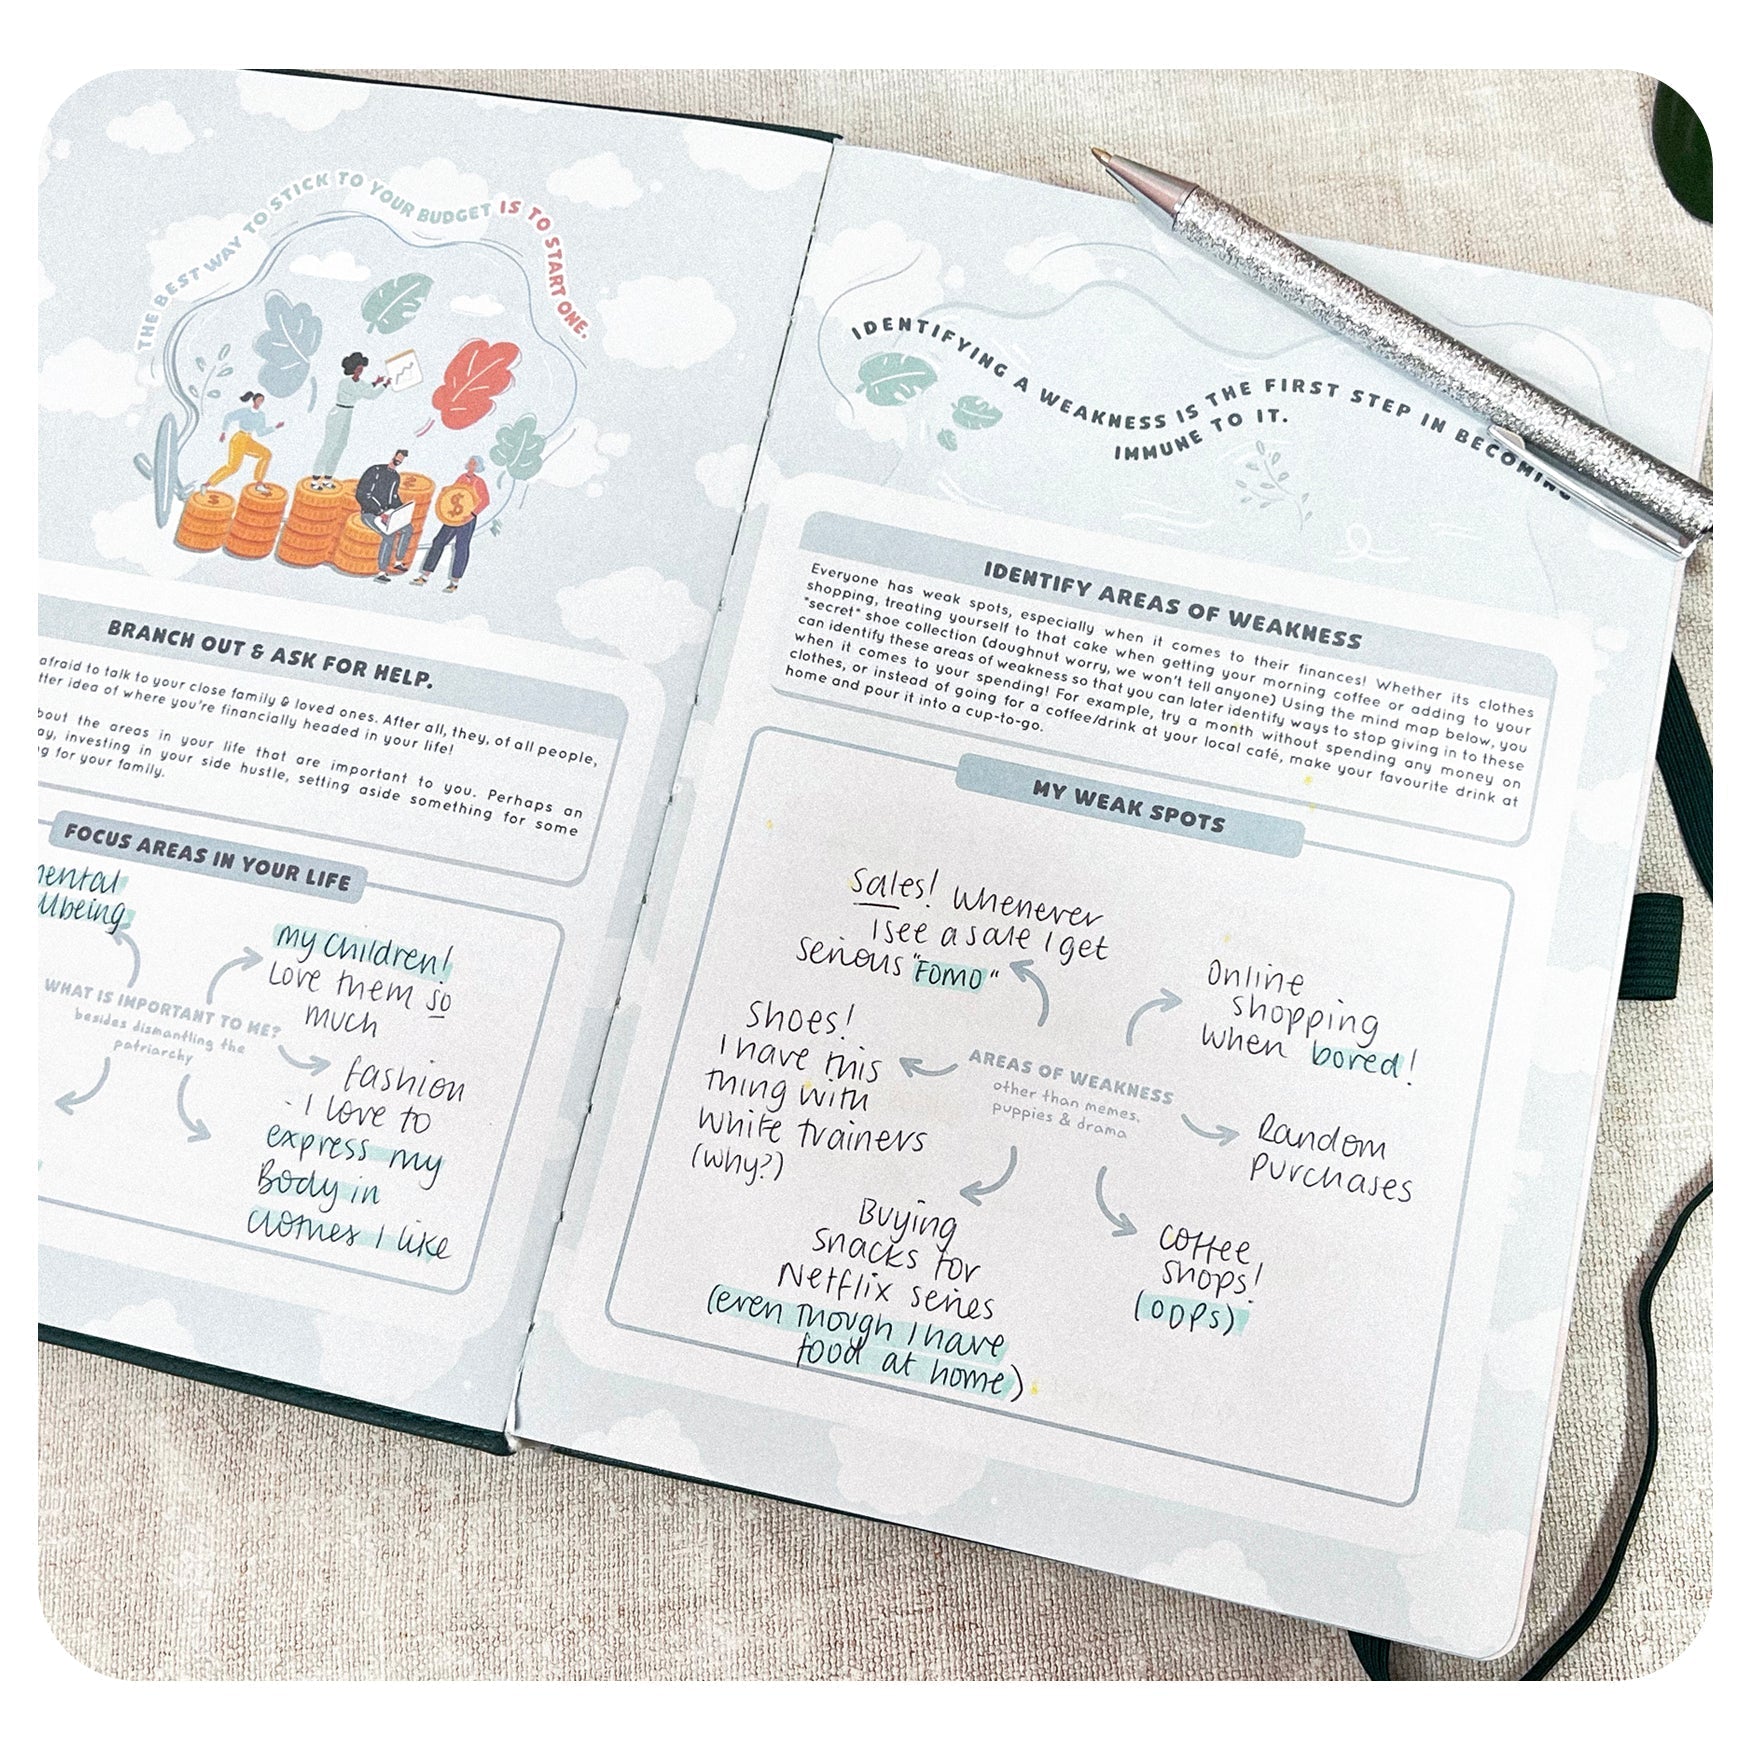 THE BEST WAY TO STICK TO YOUR BUDGET IS TO START ONE.
BRANCH OUT & ASK FOR HELP.
afraid to talk to your close family & loved ones. After all, they, of all people,
idea of where you're financially headed in your life!
about the areas in your life that are important to you. Perhaps an
investing in your side hustle, setting aside something for some
for your family.
FOCUS AREAS IN YOUR LIFE
mental
my children!
Love them so
much
WHAT IS IMPORTANT TO ME?
besides dismantling the
patriarchy
fashion
- I love to
express my
Body in
clothes I like
IDENTIFYING A WEAKNESS IS THE FIRST STEP IN BECOMING
IMMUNE TO IT.
IDENTIFY AREAS OF WEAKNESS
Everyone has weak spots, especially when it comes to their finances! Whether its clothes
shopping, treating yourself to that cake when getting your morning coffee or adding to your
*secret* shoe collection (doughnut worry, we won't tell anyone) Using the mind map below, you
can identify these areas of weakness so that you can later identify ways to stop giving in to these
when it comes to your spending! For example, try a month without spending any money on
clothes, or instead of going for a coffee/drink at your local café, make your favourite drink at
home and pour it into a cup-to-go.
MY WEAK SPOTS
Sales! Whenever
I see a sale I get
serious "FOMO"
Online
shopping
when bored!
Shoes!
I have this
thing with
white trainers
(why?)
AREAS OF WEAKNESS
other than memes,
puppies & drama
Random
purchases
Buying
snacks for
Netflix series
(even though I have
food at home)
Coffee
shops!
(OOPS)